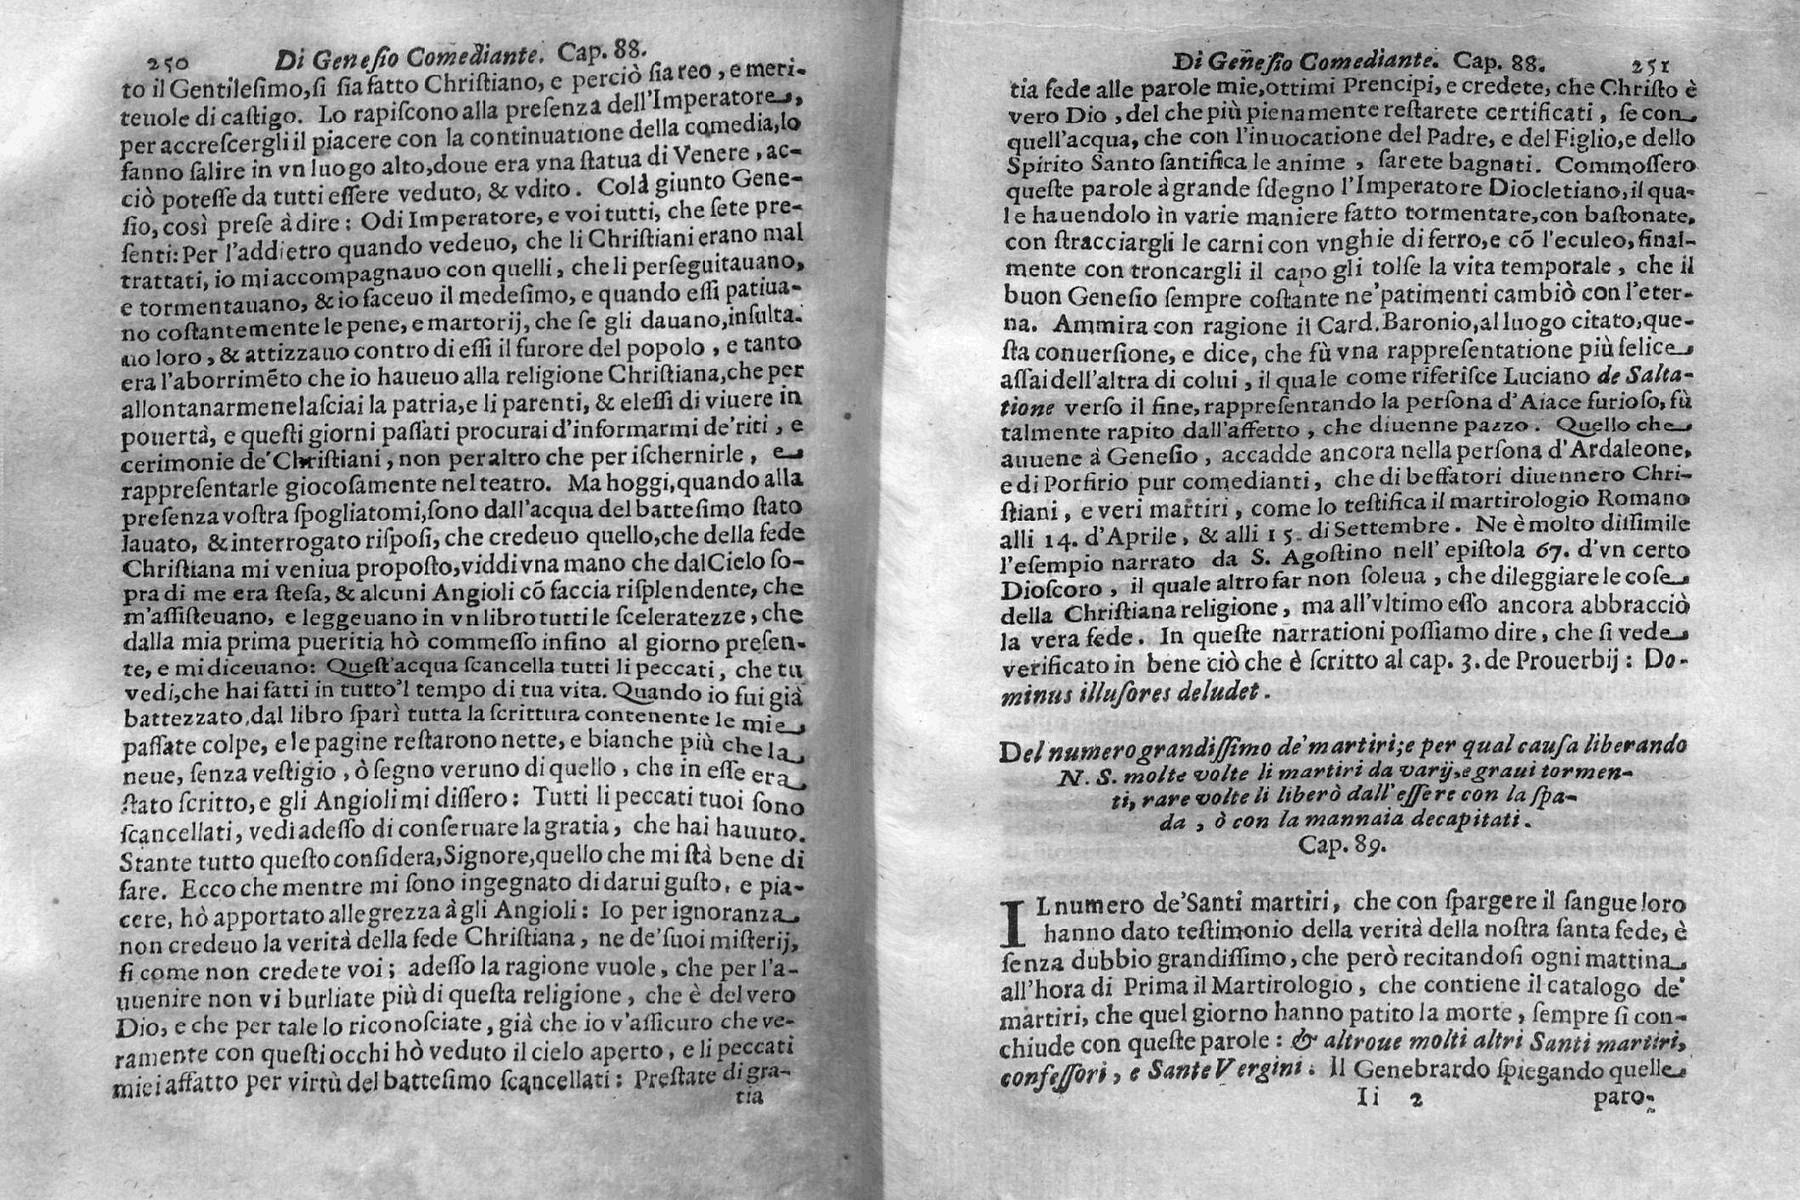 250 Di Geneſio Comediante. Cap. 88.
to il Gentileſimo, ſi ſia fatto Chriſtiano, e perciò ſia reo, e meri-
teuole di caſtigo. Lo rapiſcono alla preſenza dell'Imperatore,
per accreſcergli il piacere con la continuatione della comedia, lo
fanno ſalire in vn luogo alto, doue era vna ſtatua di Venere, ac-
ciò poteſſe da tutti eſſere veduto, & vdito. Colà giunto Gene-
ſio, così preſe à dire: Odi Imperatore, e voi tutti, che ſete pre-
ſenti: Per l'addietro quando vedeuo, che li Chriſtiani erano mal
trattati, io mi accompagnauo con quelli, che li perſeguitauano,
e tormentauano, & io faceuo il medeſimo, e quando eſſi patiua-
no coſtantemente le pene, e martorij, che ſe gli dauano, inſulta-
uo loro, & attizzauo contro di eſſi il furore del popolo, e tanto
era l'aborrimẽto che io haueuo alla religione Chriſtiana, che per
allontanarmene laſciai la patria, e li parenti, & eleſſi di viuere in
pouertà, e queſti giorni paſſati procurai d'informarmi de'riti, e
cerimonie de'Chriſtiani, non per altro che per iſchernirle, e
rappreſentarle giocoſamente nel teatro. Ma hoggi, quando alla
preſenza voſtra ſpogliatomi, ſono dall'acqua del batteſimo ſtato
lauato, & interrogato riſpoſi, che credeuo quello, che della fede
Chriſtiana mi veniua propoſto, viddi vna mano che dal Cielo ſo-
pra di me era ſteſa, & alcuni Angioli cõ faccia riſplendente, che
m'aſſiſteuano, e leggeuano in vn libro tutte le ſceleratezze, che
dalla mia prima pueritia hò commeſſo infino al giorno preſen-
te, e mi diceuano: Queſt'acqua ſcancella tutti li peccati, che tu
vedi, che hai fatti in tutto'l tempo di tua vita. Quando io fui già
battezzato, dal libro ſparì tutta la ſcrittura contenente le mie
paſſate colpe, e le pagine reſtarono nette, e bianche più che la
neue, ſenza veſtigio, ò ſegno veruno di quello, che in eſſe era
ſtato ſcritto, e gli Angioli mi diſſero: Tutti li peccati tuoi ſono
ſcancellati, vedi adeſſo di conſeruare la gratia, che hai hauuto.
Stante tutto queſto conſidera, Signore, quello che mi ſtà bene di
fare. Ecco che mentre mi ſono ingegnato di darui guſto, e pia-
cere, hò apportato allegrezza à gli Angioli: Io per ignoranza
non credeuo la verità della fede Chriſtiana, ne de'ſuoi miſterij,
ſi come non credete voi; adeſſo la ragione vuole, che per l'a-
uuenire non vi burliate più di queſta religione, che è del vero
Dio, e che per tale lo riconoſciate, già che io v'aſſicuro che ve-
ramente con queſti occhi hò veduto il cielo aperto, e li peccati
miei affatto per virtù del batteſimo ſcancellati: Preſtate di gra-
tia
Di Geneſio Comediante. Cap. 88. 251
tia fede alle parole mie, ottimi Prencipi, e credete, che Chriſto è
vero Dio, del che più pienamente reſtarete certificati, ſe con
quell'acqua, che con l'inuocatione del Padre, e del Figlio, e dello
Spirito Santo ſantifica le anime, ſarete bagnati. Commoſſero
queſte parole à grande ſdegno l'Imperatore Diocletiano, il qua-
le hauendolo in varie maniere fatto tormentare, con baſtonate,
con ſtracciargli le carni con vnghie di ferro, e cõ l'eculeo, final-
mente con troncargli il capo gli tolſe la vita temporale, che il
buon Geneſio ſempre coſtante ne'patimenti cambiò con l'eter-
na. Ammira con ragione il Card. Baronio, al luogo citato, que-
ſta conuerſione, e dice, che fù vna rappreſentatione più felice
aſſai dell'altra di colui, il quale come riferiſce Luciano de Salta-
tione verſo il fine, rappreſentando la perſona d'Aiace furioſo, fù
talmente rapito dall'affetto, che diuenne pazzo. Quello che
auuene à Geneſio, accadde ancora nella perſona d'Ardaleone,
e di Porfirio pur comedianti, che di beffatori diuennero Chri-
ſtiani, e veri martiri, come lo teſtifica il martirologio Romano
alli 14. d'Aprile, & alli 15. di Settembre. Ne è molto diſſimile
l'eſempio narrato da S. Agoſtino nell'epiſtola 67. d'vn certo
Dioſcoro, il quale altro far non ſoleua, che dileggiare le coſe
della Chriſtiana religione, ma all'vltimo eſſo ancora abbracciò
la vera fede. In queſte narrationi poſſiamo dire, che ſi vede
verificato in bene ciò che è ſcritto al cap. 3. de Prouerbij: Do-
minus illuſores deludet.
Del numero grandiſſimo de' martiri; e per qual cauſa liberando
N. S. molte volte li martiri da varij, e graui tormen-
ti, rare volte li liberò dall'eſſere con la ſpa-
da, ò con la mannaia decapitati.
Cap. 89.
IL numero de'Santi martiri, che con ſpargere il ſangue loro
hanno dato teſtimonio della verità della noſtra ſanta fede, è
ſenza dubbio grandiſſimo, che però recitandoſi ogni mattina
all'hora di Prima il Martirologio, che contiene il catalogo de'
martiri, che quel giorno hanno patito la morte, ſempre ſi con-
chiude con queſte parole: & altroue molti altri Santi martiri,
confeſſori, e Sante Vergini. Il Genebrardo ſpiegando quelle
Ii 2 paro-